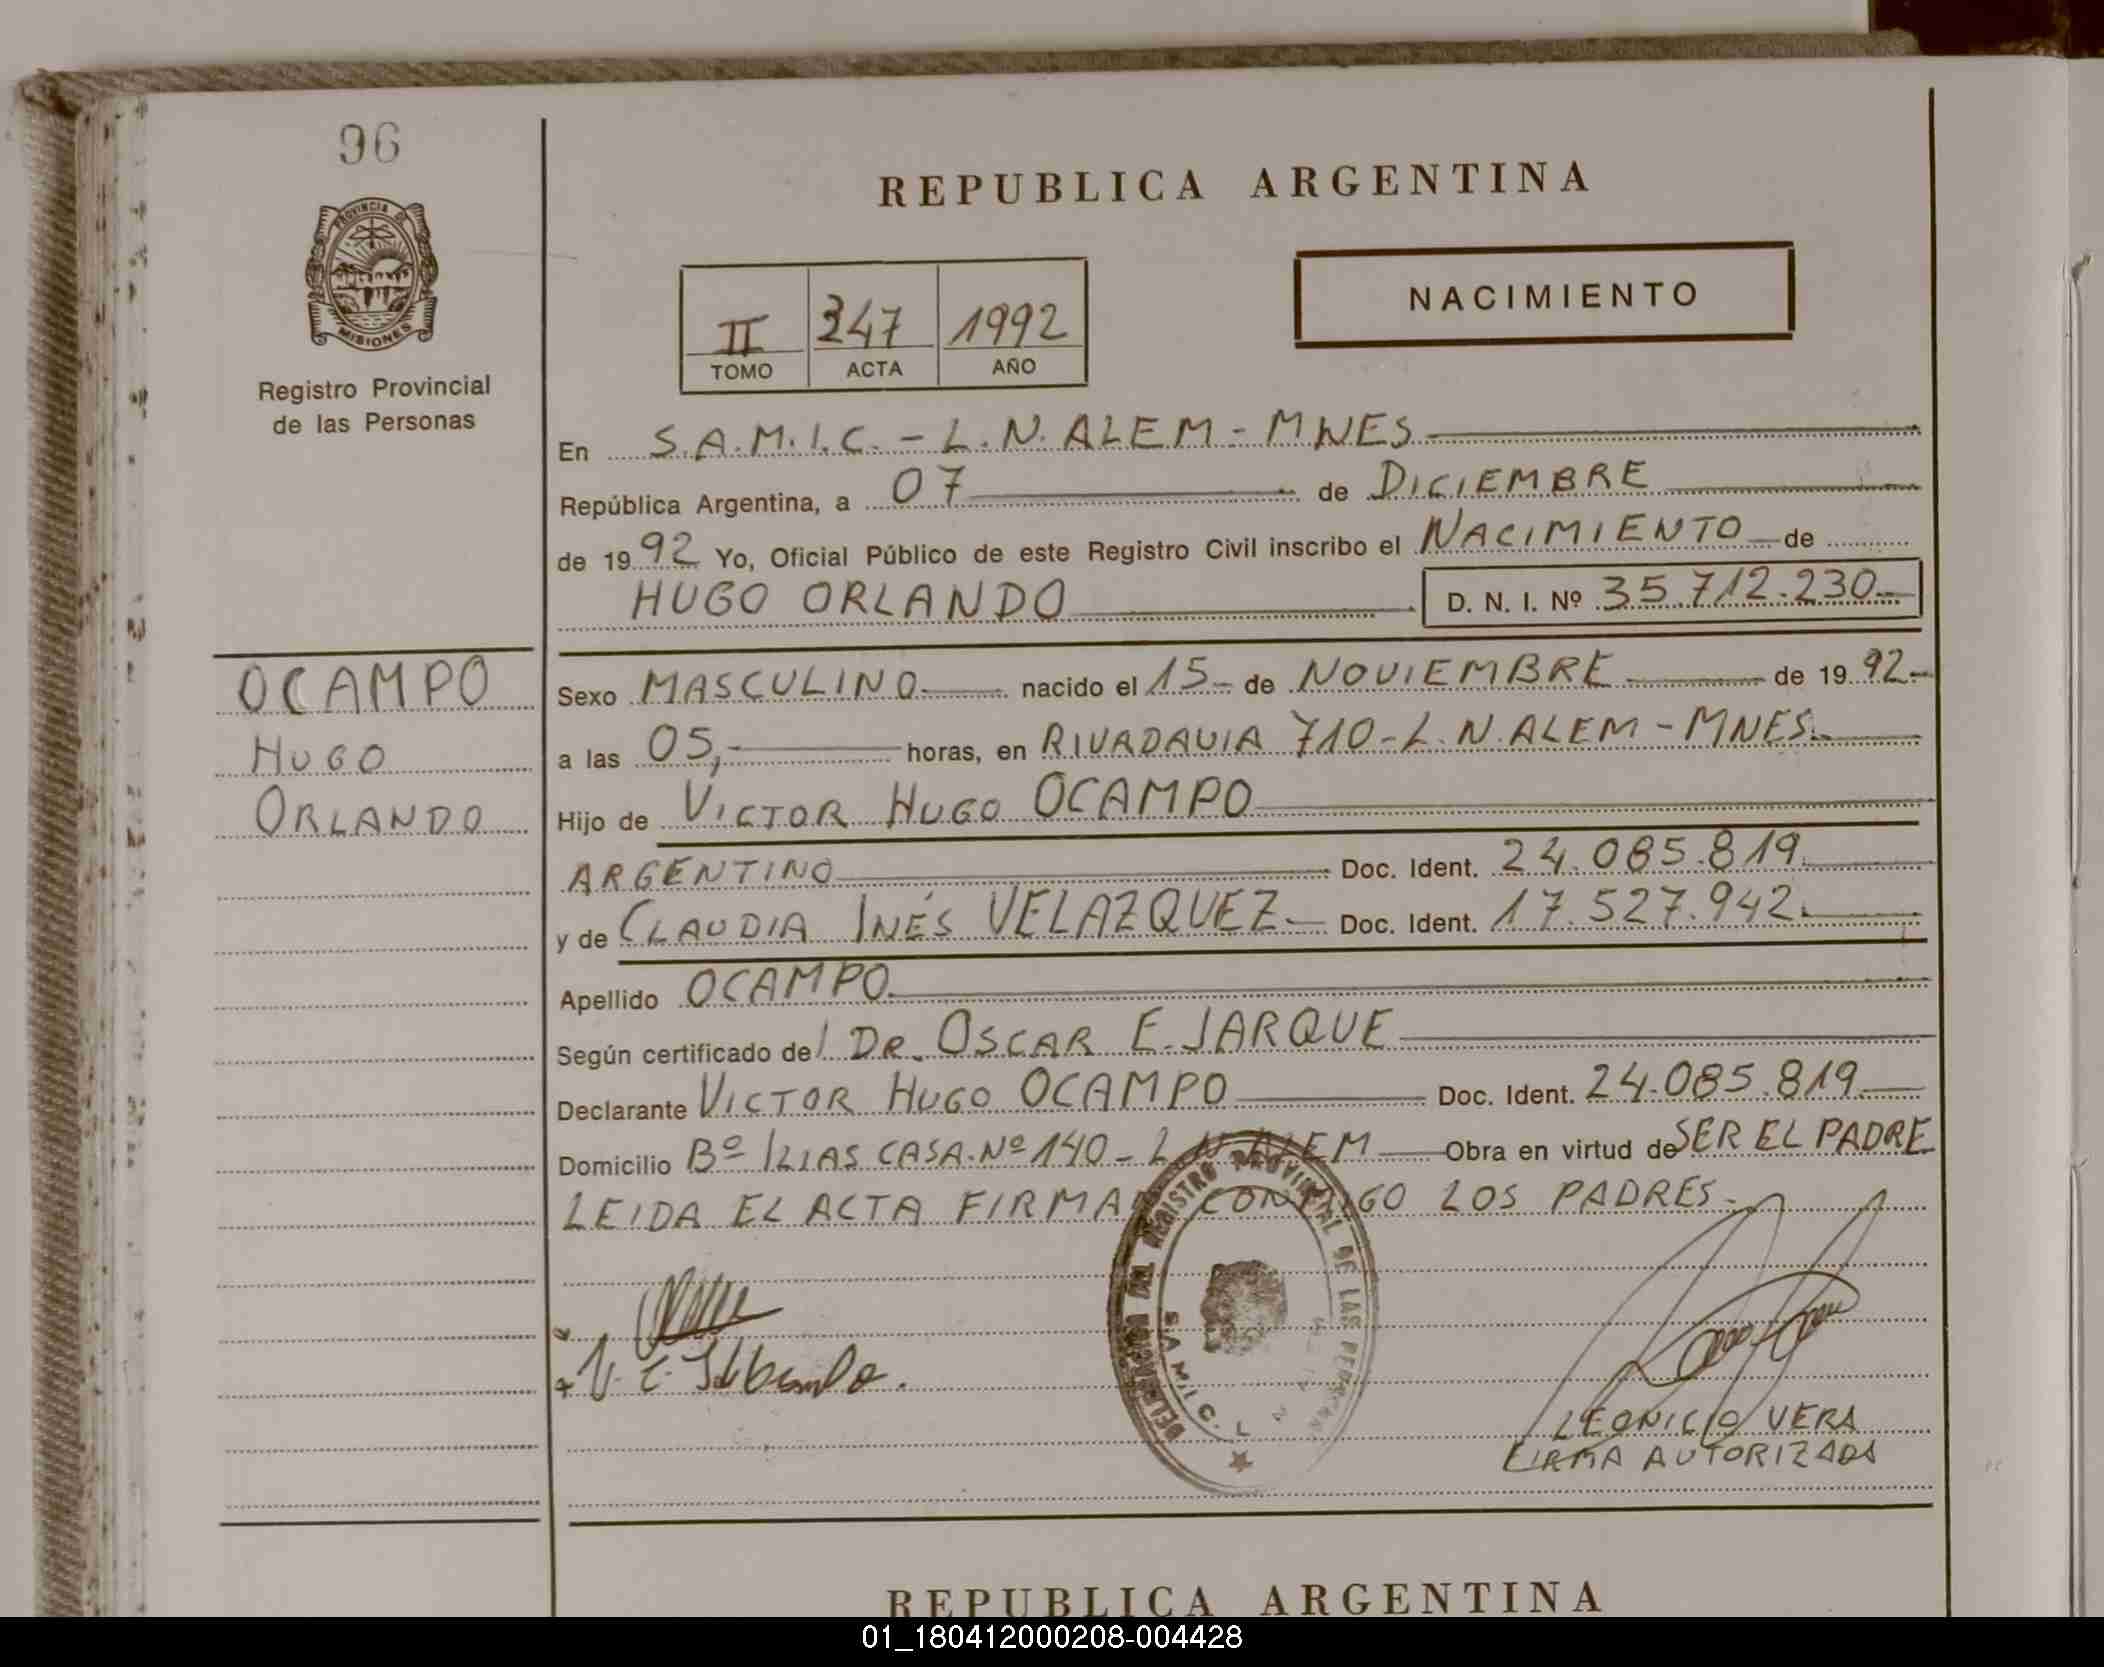 96
PROVINCIA DE
MISIONES
Registro Provincial
de las Personas
REPUBLICA ARGENTINA
II 347 1992
TOMO ACTA AÑO
NACIMIENTO
En S.A.M.I.C. - L.N. ALEM - MNES
República Argentina, a 07 de DICIEMBRE
de 1992 Yo, Oficial Público de este Registro Civil inscribo el NACIMIENTO de
HUGO ORLANDO D. N. I. Nº 35.712.230
OCAMPO
HUGO
ORLANDO
Sexo MASCULINO nacido el 15 de NOVIEMBRE de 1992
a las 05, horas, en RIVADAVIA 710 - L.N. ALEM - MNES.
Hijo de VICTOR HUGO OCAMPO
ARGENTINO Doc. Ident. 24.085.819
y de CLAUDIA INÉS VELAZQUEZ Doc. Ident. 17.527.942
Apellido OCAMPO
Según certificado del DR. OSCAR E. JARQUE
Declarante VICTOR HUGO OCAMPO Doc. Ident. 24.085.819
Domicilio Bº ILIAS CASA Nº 140 - L.N. ALEM Obra en virtud de SER EL PADRE
LEIDA EL ACTA FIRMAN CONMIGO LOS PADRES.
REGISTRO PROVINCIAL DE LAS PERSONAS
S.A.M.I.C. L N
LEONICIO VERA
FIRMA AUTORIZADA
REPUBLICA ARGENTINA
01_180412000208-004428